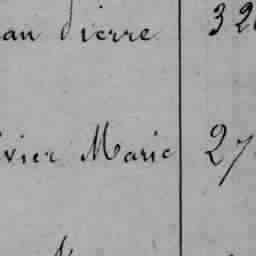 an Pierre 32
vier Marie 27